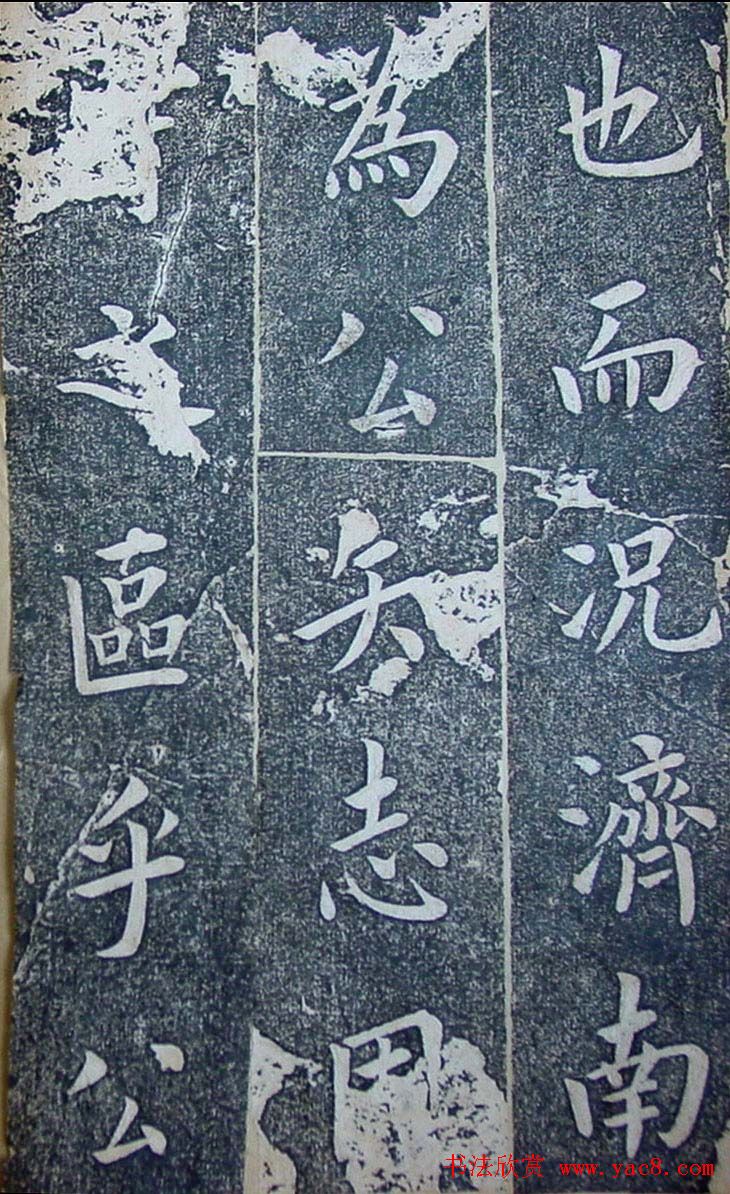 也而况濟南
為公矢志
區乎公
书法欣赏 www.yac8.com